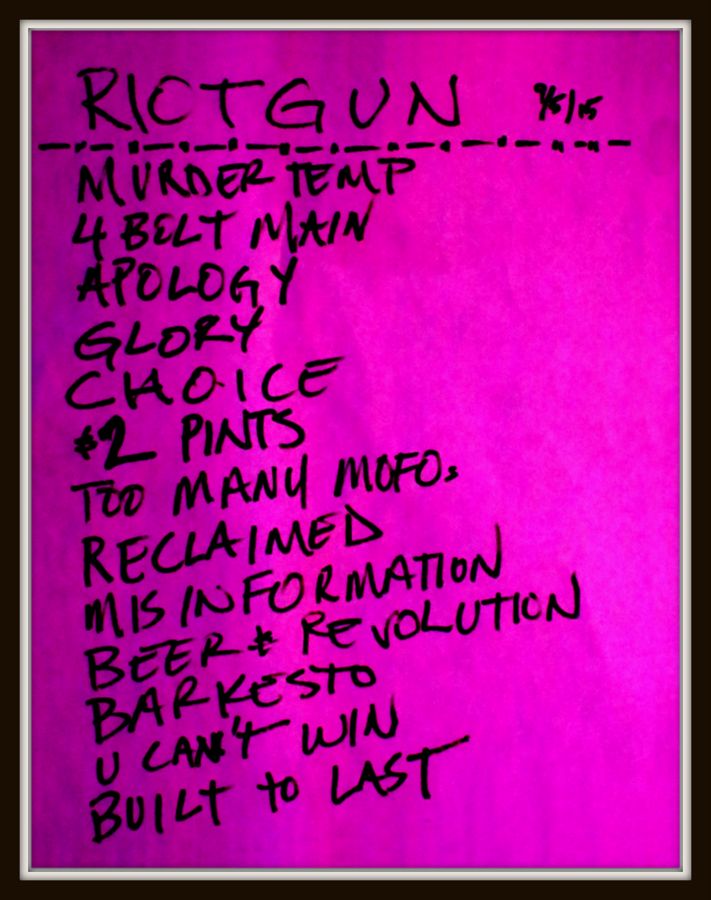 RIOTGUN 9/5/15
MURDER TEMP
4 BELT MAIN
APOLOGY
GLORY
CHOICE
$2 PINTS
TOO MANY MOFOs
RECLAIMED
MISINFORMATION
BEER & REVOLUTION
BARKESTO
U CAN'T WIN
BUILT to LAST